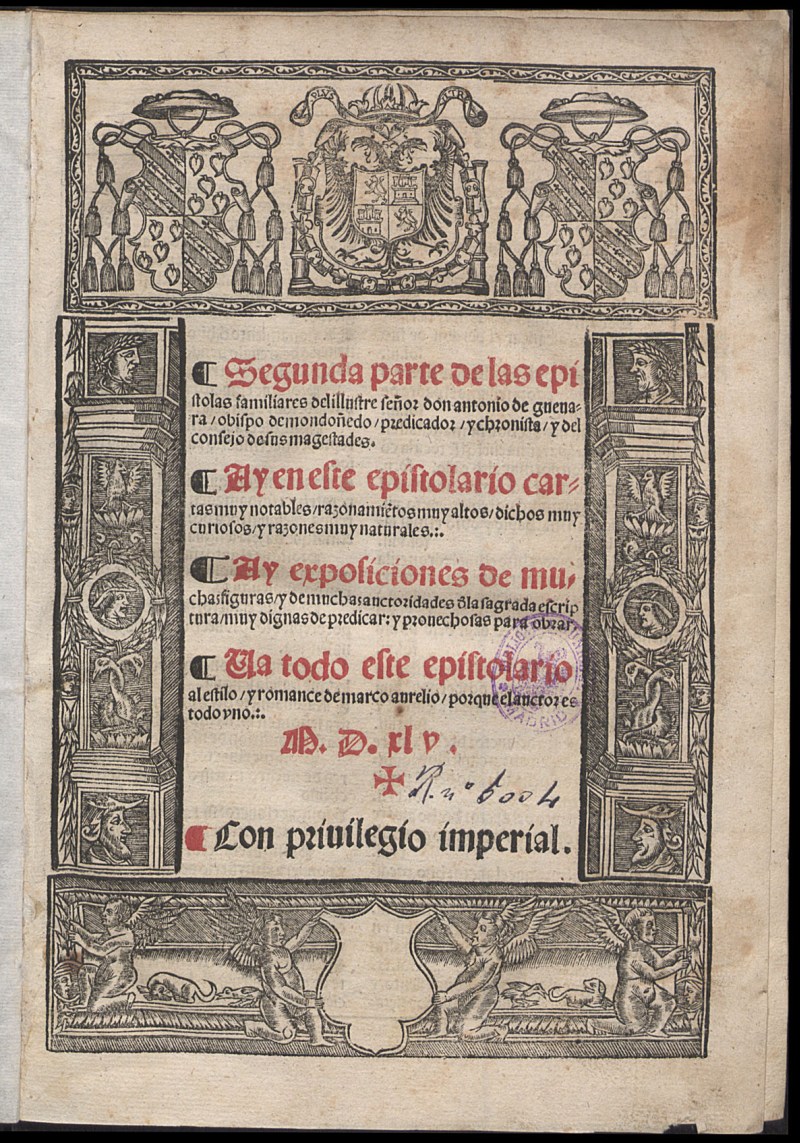 PLVS VLTR
¶ Segunda parte de las epi
stolas familiares del illustre señor don antonio de gueua-
ra / obispo de mondoñedo / predicador / y chronista / y del
consejo de sus magestades.
¶ Ay en este epistolario car-
tas muy notables / razonamiẽtos muy altos / dichos muy
curiosos / y razones muy naturales.:.
¶ Ay exposiciones de mu-
chas figuras / y de muchas auctoridades d̃la sagrada escrip
tura / muy dignas de predicar: y prouechosas para obrar
¶ Ua todo este epistolario
al estilo / y romance de marco aurelio / porque el auctor es
todo vno.:.
M. D. xl v.
✠ R. nº 6004
MADRID
¶ Con priuilegio imperial.